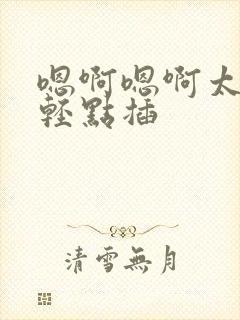 嗯啊嗯啊太
輕點插
清雪無月